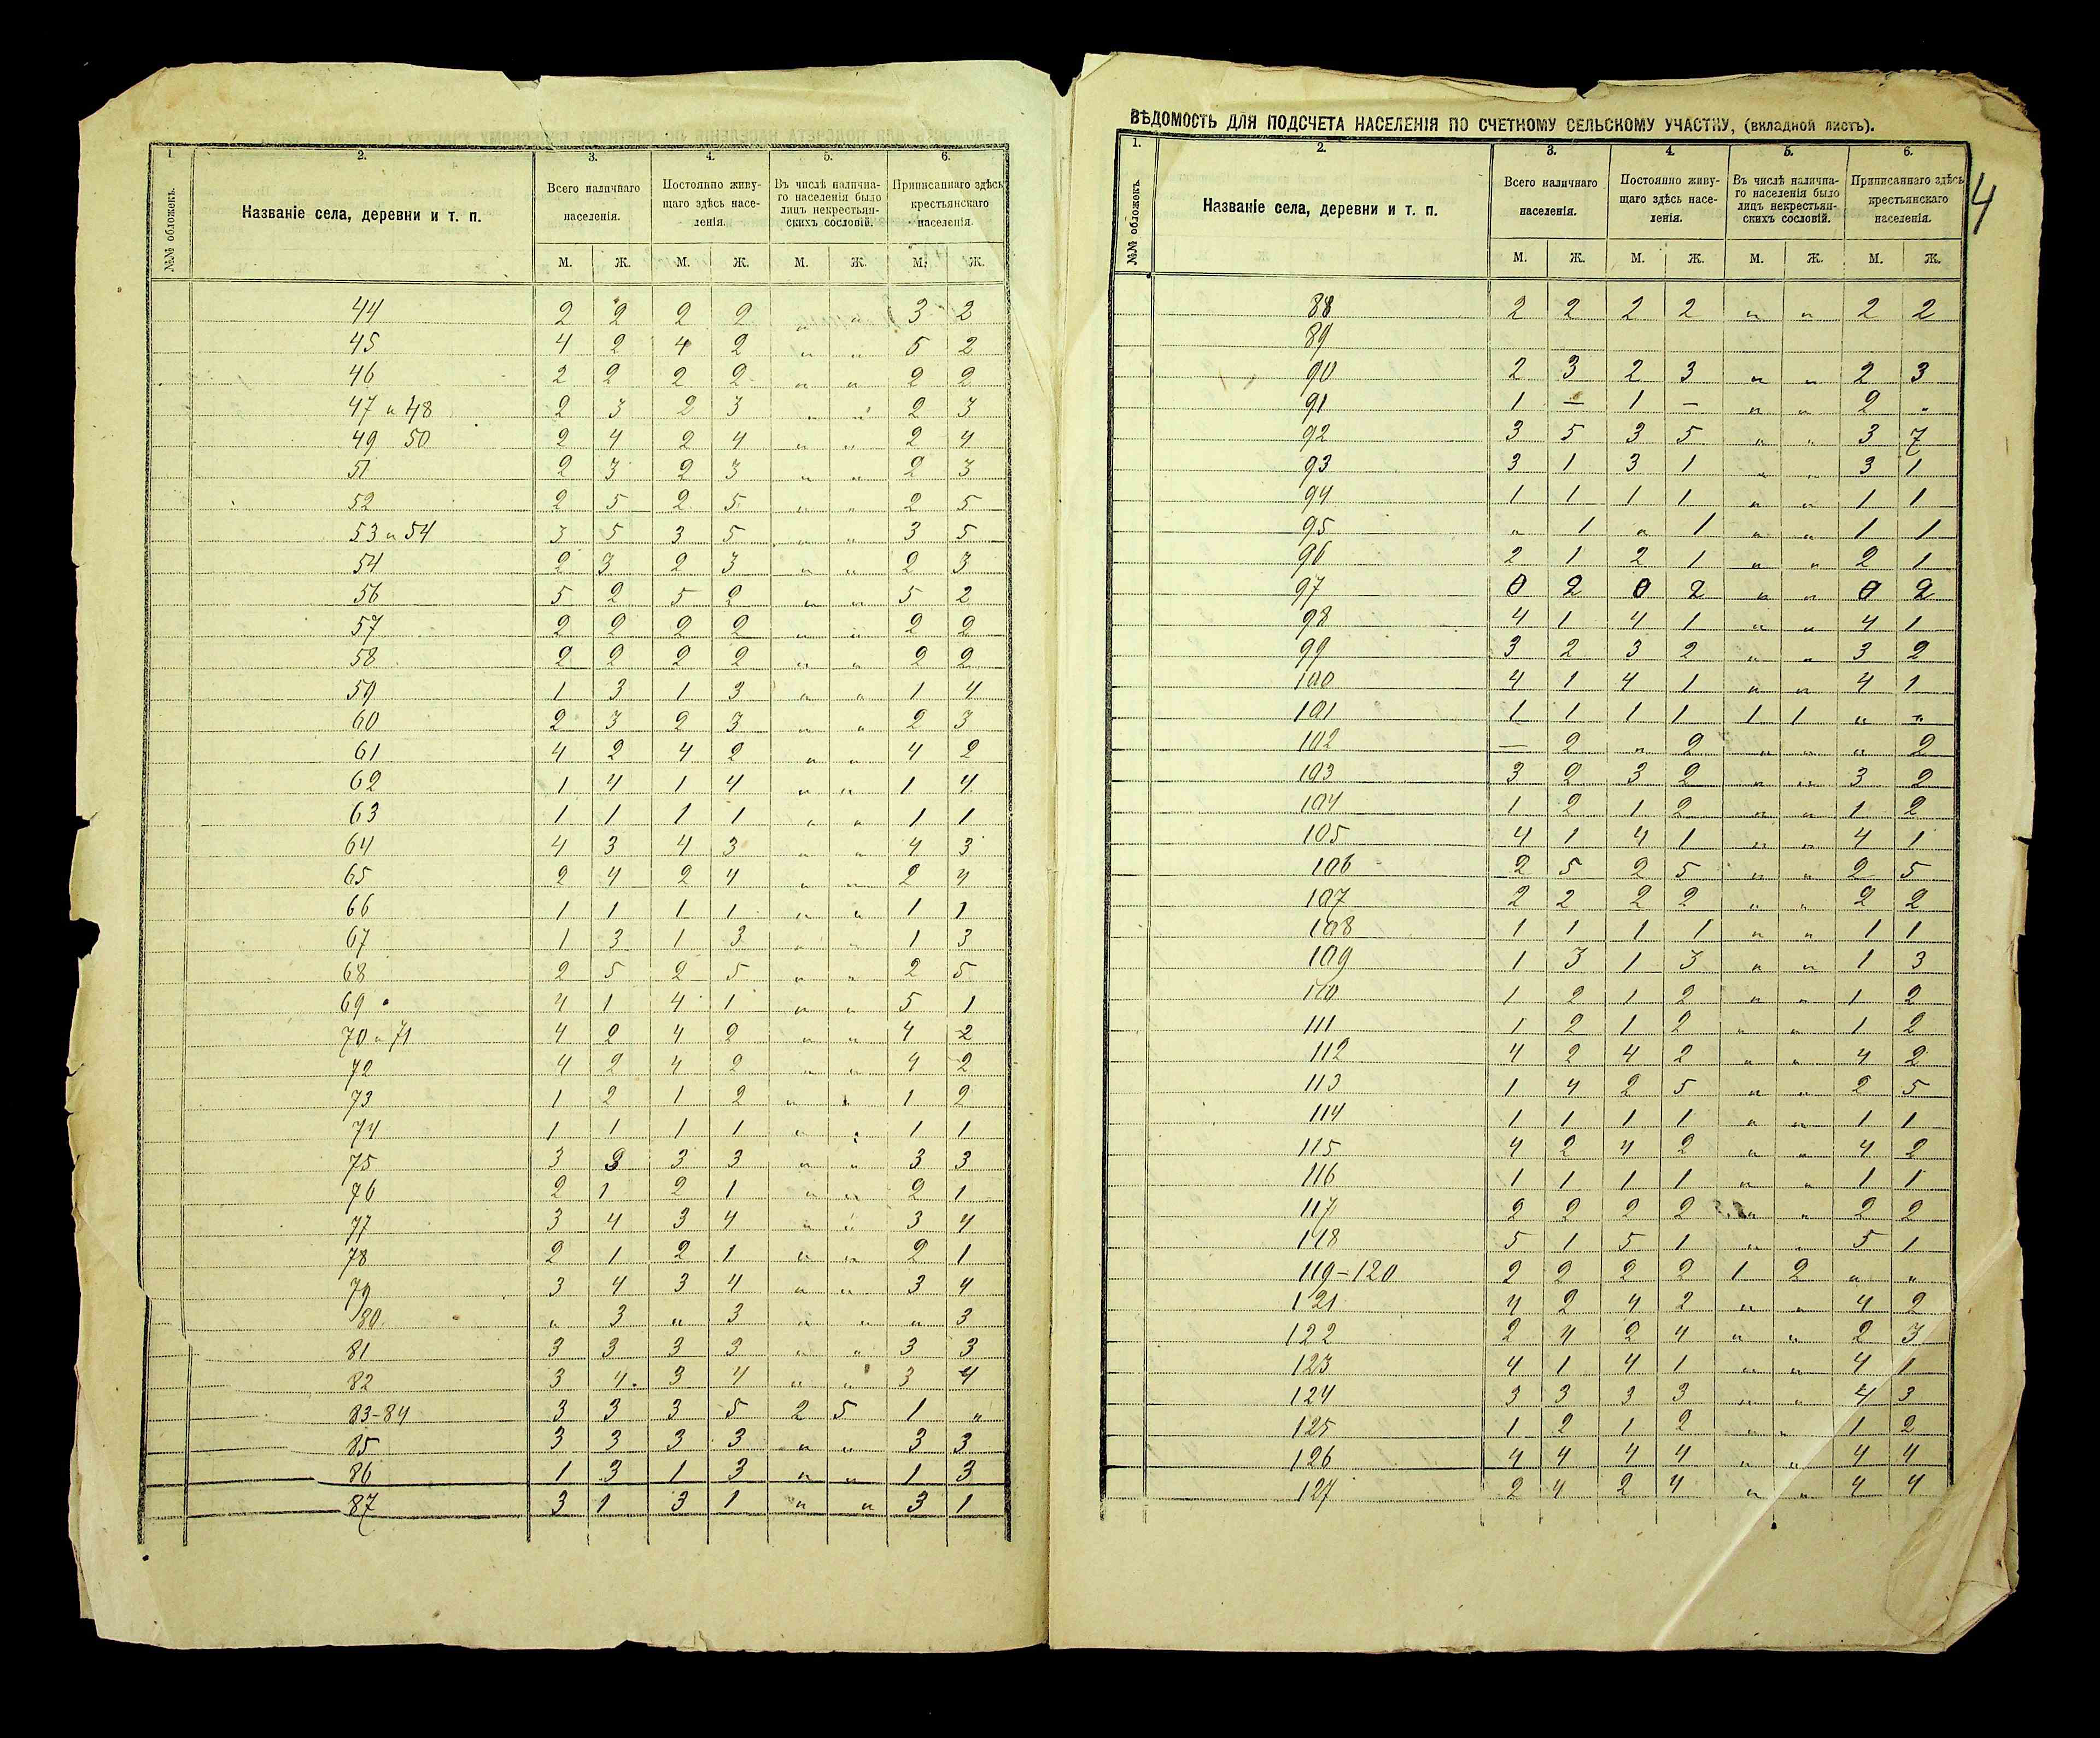 1.
2.
3.
4.
5.
6.
№№ обложекъ.
Названіе села, деревни и т. п.
Всего наличнаго населенія.
Постоянно живу-
щаго здѣсь насе-
ленія.
Въ числѣ налична-
го населенія было
лицъ некрестьян-
скихъ сословій.
Приписаннаго здѣсь
крестьянскаго
населенія.
М. Ж. М. Ж. М. Ж. М. Ж.
44 2 2 2 2 „ „ 3 2
45 4 2 4 2 „ „ 5 2
46 2 2 2 2 „ „ 2 2
47 и 48 2 3 2 3 „ „ 2 3
49 50 2 4 2 4 „ „ 2 4
51 2 3 2 3 „ „ 2 3
52 2 5 2 5 „ „ 2 5
53 и 54 3 5 3 5 „ „ 3 5
54 2 3 2 3 „ „ 2 3
56 5 2 5 2 „ „ 5 2
57 2 2 2 2 „ „ 2 2
58 2 2 2 2 „ „ 2 2
59 1 3 1 3 „ „ 1 4
60 2 3 2 3 „ „ 2 3
61 4 2 4 2 „ „ 4 2
62 1 4 1 4 „ „ 1 4
63 1 1 1 1 „ „ 1 1
64 4 3 4 3 „ „ 4 3
65 2 4 2 4 „ „ 2 4
66 1 1 1 1 „ „ 1 1
67 1 3 1 3 „ „ 1 3
68 2 5 2 5 „ „ 2 5
69 4 1 4 1 „ „ 5 1
70 и 71 4 2 4 2 „ „ 4 2
72 4 2 4 2 „ „ 4 2
73 1 2 1 2 „ „ 1 2
74 1 1 1 1 „ „ 1 1
75 3 3 3 3 „ „ 3 3
76 2 1 2 1 „ „ 2 1
77 3 4 3 4 „ „ 3 4
78 2 1 2 1 „ „ 2 1
79 3 4 3 4 „ „ 3 4
80 „ 3 „ 3 „ „ „ 3
81 3 3 3 3 „ „ 3 3
82 3 4 3 4 „ „ 3 4
83-84 3 3 3 5 2 5 1 „
85 3 3 3 3 „ „ 3 3
86 1 3 1 3 „ „ 1 3
87 3 1 3 1 „ „ 3 1
ВѢДОМОСТЬ ДЛЯ ПОДСЧЕТА НАСЕЛЕНІЯ ПО СЧЕТНОМУ СЕЛЬСКОМУ УЧАСТКУ, (вкладной листъ).
4
1.
2.
3.
4.
5.
6.
№№ обложекъ.
Названіе села, деревни и т. п.
Всего наличнаго населенія.
Постоянно живу-
щаго здѣсь насе-
ленія.
Въ числѣ налична-
го населенія было
лицъ некрестьян-
скихъ сословій.
Приписаннаго здѣсь
крестьянскаго
населенія.
М. Ж. М. Ж. М. Ж. М. Ж.
88 2 2 2 2 „ „ 2 2
89
90 2 3 2 3 „ „ 2 3
91 1 — 1 — „ „ 2 „
92 3 5 3 5 „ „ 3 7
93 3 1 3 1 „ „ 3 1
94 1 1 1 1 „ „ 1 1
95 „ 1 „ 1 „ „ 1 1
96 2 1 2 1 „ „ 2 1
97 0 2 0 2 „ „ 0 2
98 4 1 4 1 „ „ 4 1
99 3 2 3 2 „ „ 3 2
100 4 1 4 1 „ „ 4 1
101 1 1 1 1 1 1 „ „
102 — 2 „ 2 „ „ „ 2
103 3 2 3 2 „ „ 3 2
104 1 2 1 2 „ „ 1 2
105 4 1 4 1 „ „ 4 1
106 2 5 2 5 „ „ 2 5
107 2 2 2 2 „ „ 2 2
108 1 1 1 1 „ „ 1 1
109 1 3 1 3 „ „ 1 3
110 1 2 1 2 „ „ 1 2
111 1 2 1 2 „ „ 1 2
112 4 2 4 2 „ „ 4 2
113 1 4 2 5 „ „ 2 5
114 1 1 1 1 „ „ 1 1
115 4 2 4 2 „ „ 4 2
116 1 1 1 1 „ „ 1 1
117 2 2 2 2 „ „ 2 2
118 5 1 5 1 „ „ 5 1
119-120 2 2 2 2 1 2 „ „
121 4 2 4 2 „ „ 4 2
122 2 4 2 4 „ „ 2 3
123 4 1 4 1 „ „ 4 1
124 3 3 3 3 „ „ 4 3
125 1 2 1 2 „ „ 1 2
126 4 4 4 4 „ „ 4 4
127 2 4 2 4 „ „ 4 4